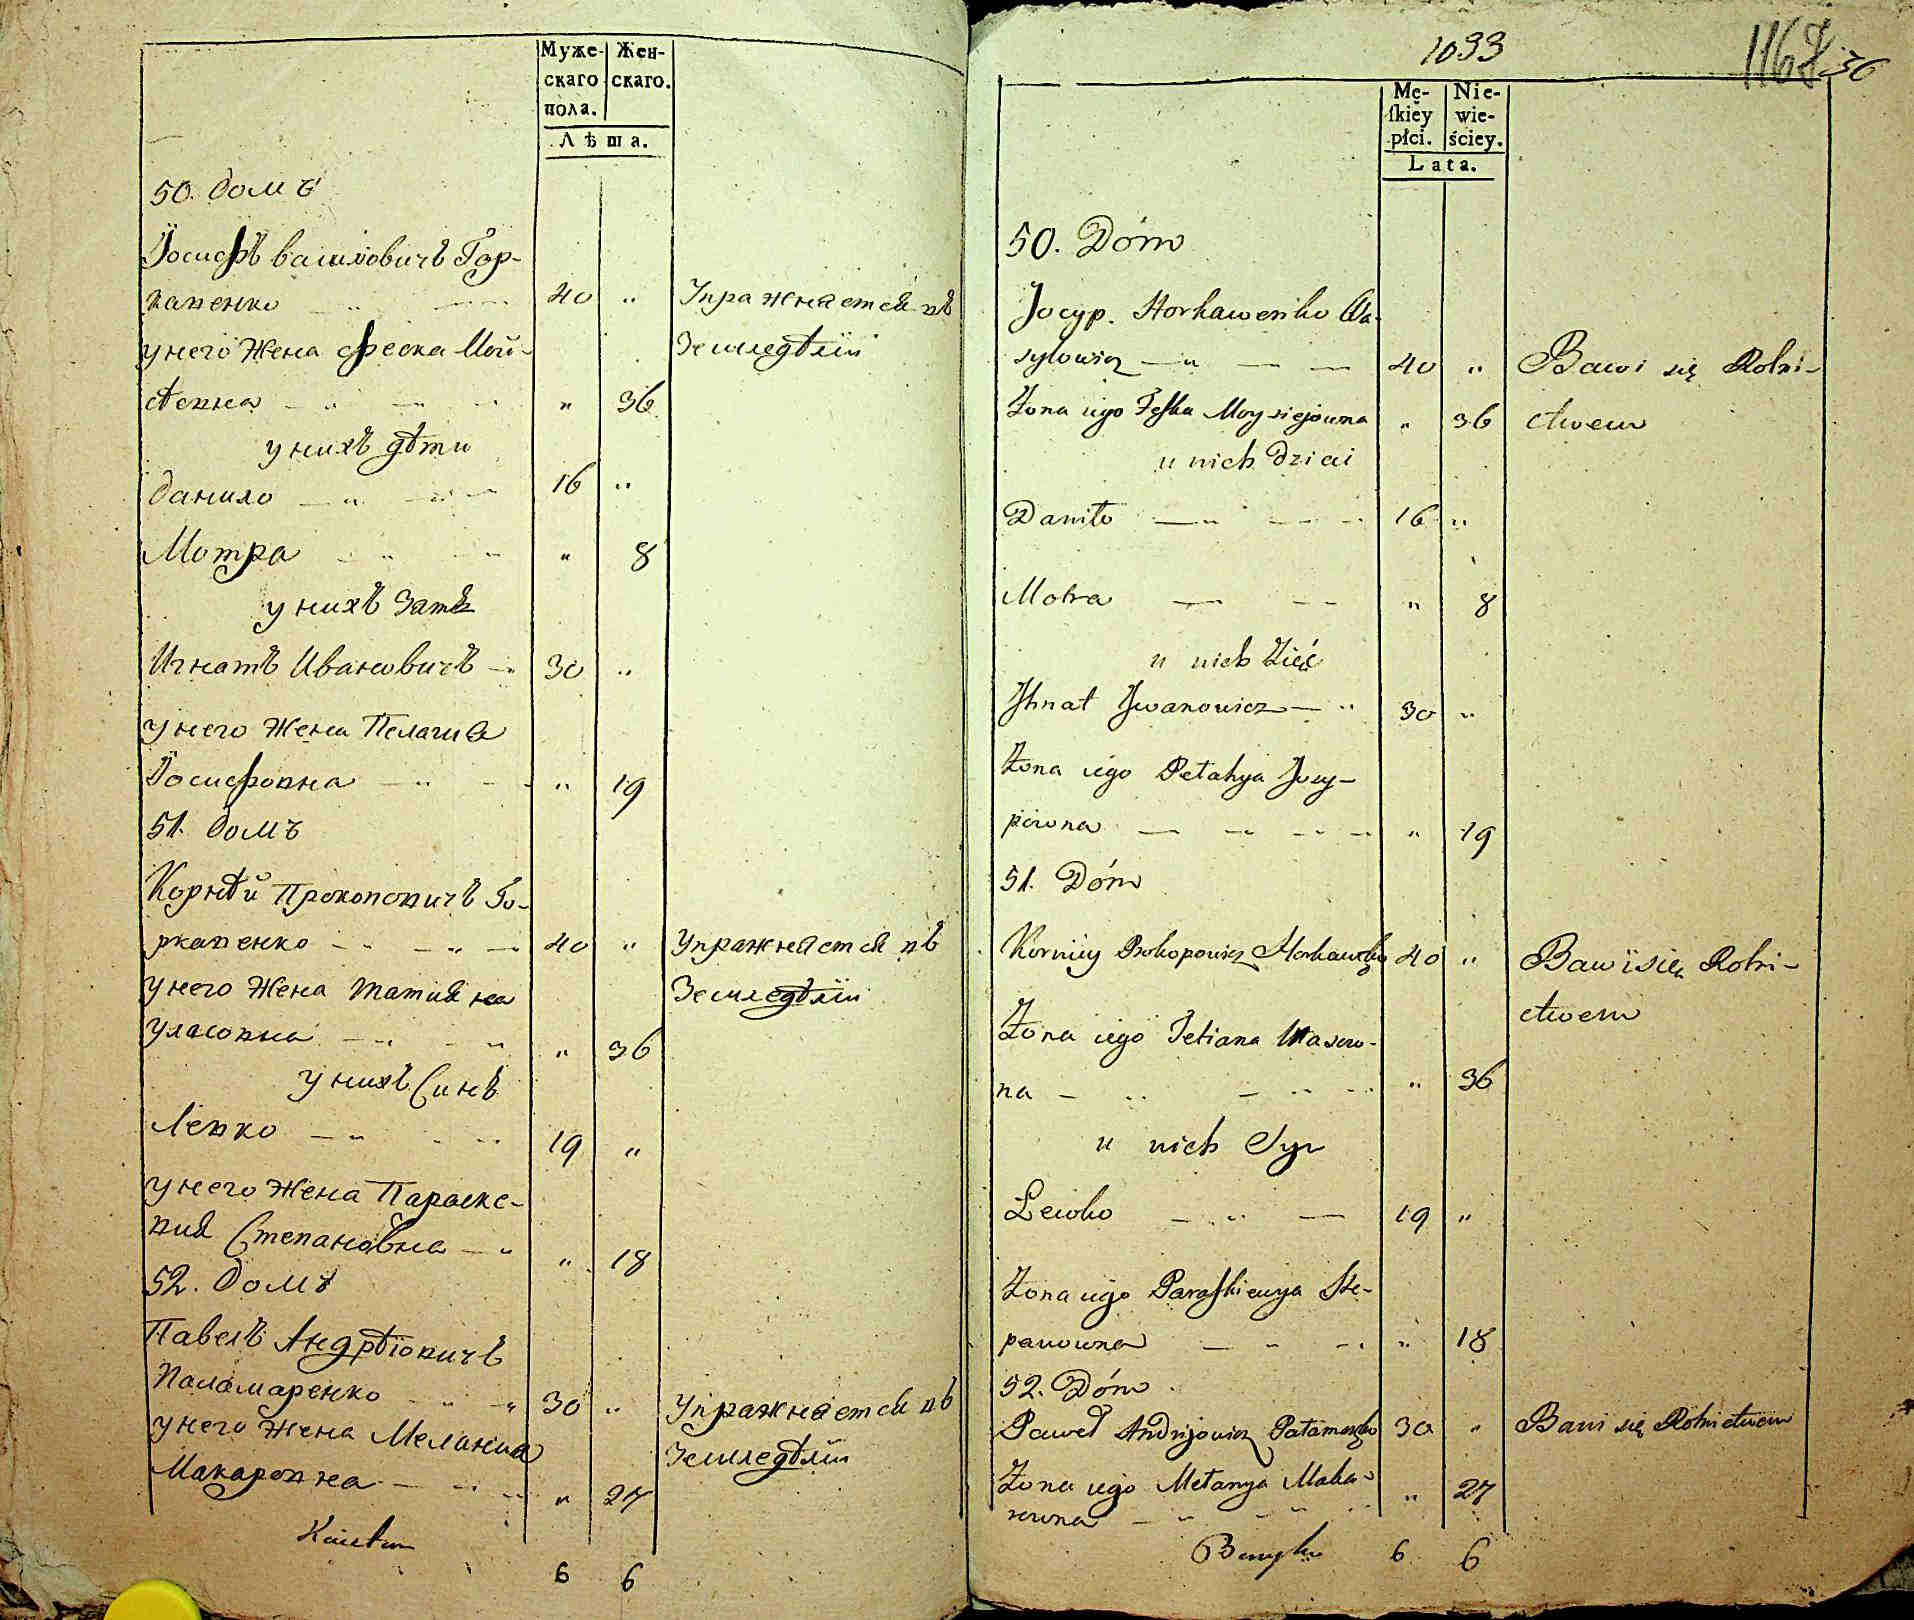 Муже-
скаго
пола.
Жен-
скаго.
Лѣта.
50. домъ
Іосифъ василовичъ Гор-
кавенко 40 " Упражняется въ
Земледѣліи
у него Жена феска Мой-
сѣевна " 36
у нихъ дѣти
данило 16 "
Мотра " 8
у нихъ Зать
Игнатъ Ивановичъ 30 "
у него Жена Пелагия
Іосифовна " 19
51. домъ
Корнѣй Прокоповичъ Го-
ркавенко 40 " Упражняется въ
Земледѣліи
у него Жена татияна
уласовна " 36
у нихъ Синъ
Левко 19 "
у него Жена Параске-
вия Степановна " 18
52. домъ
Павелъ Андрѣіовичъ
Паламаренко 30 " Упражняется въ
Земледѣліи
у него Жена Мелания
Макаровна " 27
6 6
1033
1168 56
Mę-
ſkiéy
płci.
Nie-
wie-
ściey.
Lata.
50. Dóm
Jocyp. Horkawenko Wa-
sylowicz 40 " Bawi się Rolni-
ctwem
Żona iego Feſka Moysiejowna " 36
u nich Dzieci
Daniło 16 "
Motra " 8
u nich Zięć
Jhnat Jwanowicz 30 "
Żona iego Pełahya Josy-
powna " 19
51. Dóm
Korniey Prokopowicz Horkawenko 40 " Bawi się Rolni-
ctwem
Żona iego Tetiana Własow-
na " 36
u nich Syn
Lewko 19 "
Żona iego Paraſkiewya Ste-
panowna " 18
52. Dóm
Paweł Andrijowicz Pałamarenko 30 " Bawi się Rolnictwem
Żona iego Mełanya Maka-
rowna " 27
6 6